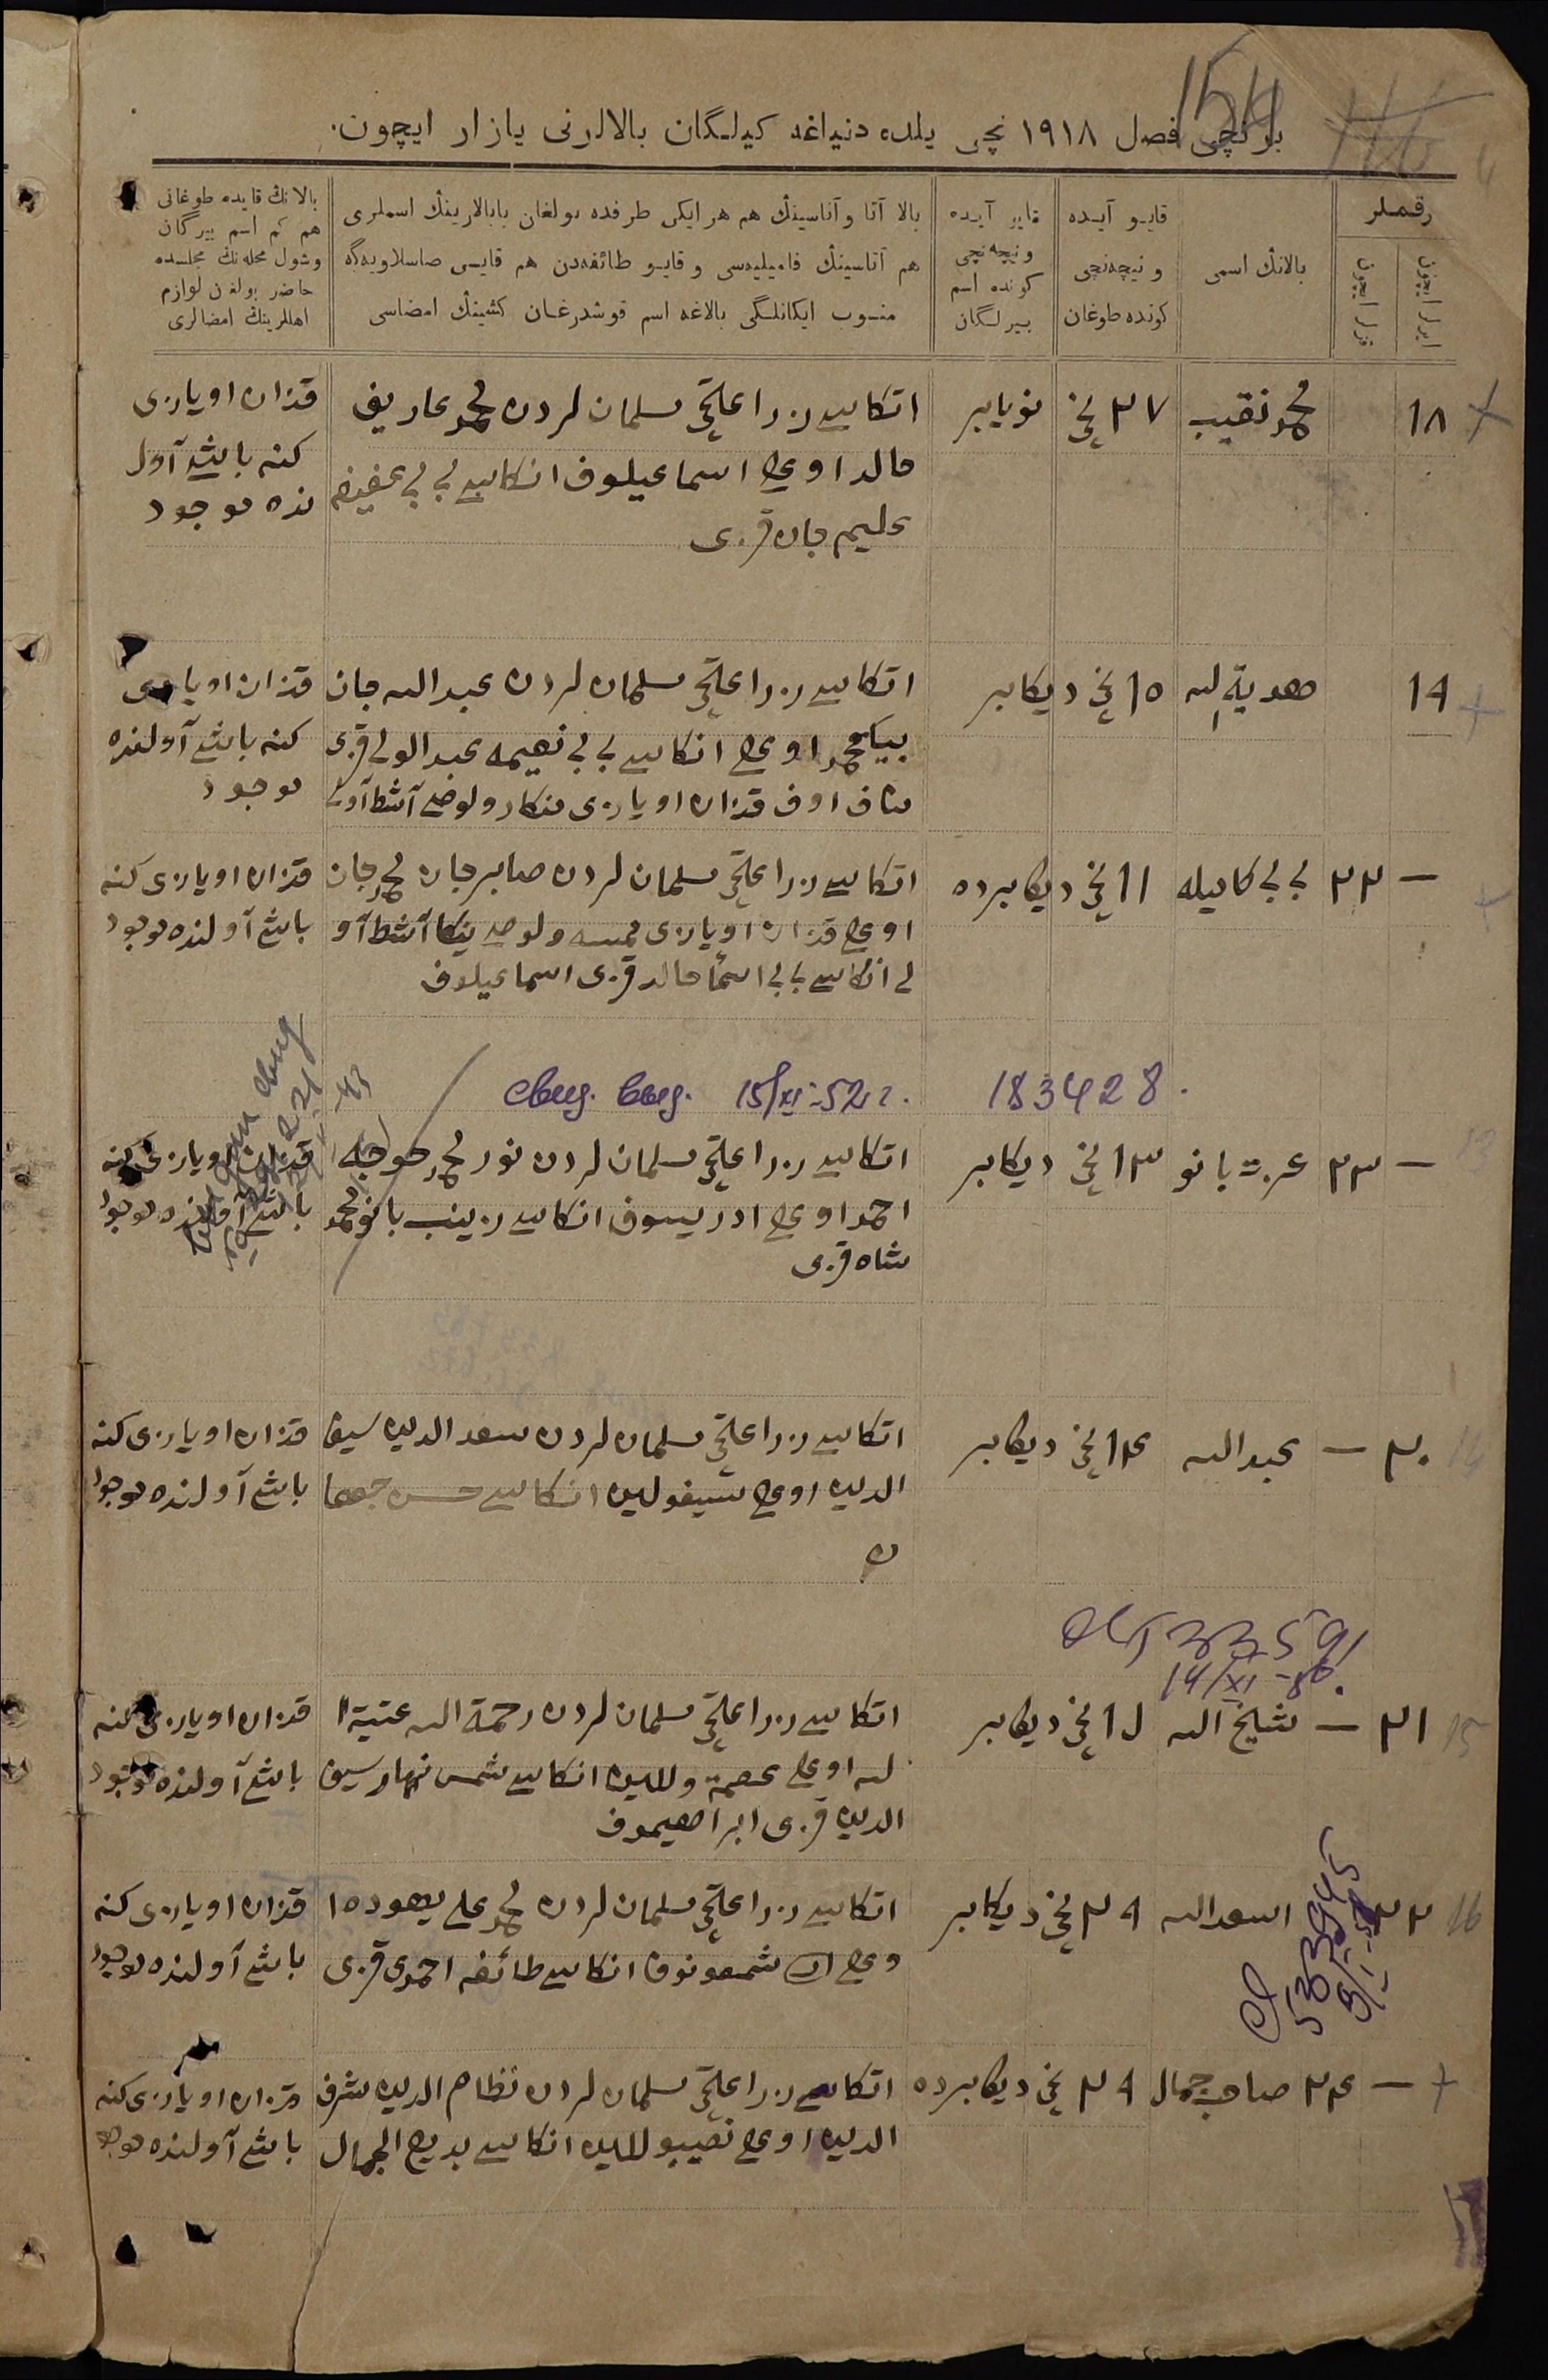 154
برنچی فصل ١٩١٨ نچی یلده دنیاغه کیلگان بالالرنی یازار ایچون.
رقملر
ایرلر ایچون
قزلر ایچون
بالانڭ اسمی
قایو آیده
و نیچه‌نچی
کونده طوغان
قایو آیده
و نیچه‌نچی
کونده اسم
بیرلگان
بالا آتا و آناسینڭ هم هر ایکی طرفده بولغان بابالارینڭ اسملری
هم آناسینڭ فامیلیه‌سی و قایو طائفه‌دن هم قایسی صاسلاویه‌گه
منسوب ایکانلگی بالاغه اسم قوشدرغان کشینڭ امضاسی
بالانڭ قایده طوغانی
هم کم اسم بیرگان
و شول محله‌نڭ مجلسده
حاضر بولغان لوازم
اهللرینڭ امضالری
١٨
محمد نقیب
٢٧ نچی
نویابر
اتکاسی زراعتچی مسلمان لردن محمد عاریف
خالد اوغلی اسماعیلوف انکاسی بی بی عفیفه
علیم جان قزی
قزان اویازی
کنه باش آول
نده موجود
١٩
هدیة الله
١٥ نچی دیکابر
اتکاسی زراعتچی مسلمان لردن عبدالله جان
بیکمحمد اوغلی انکاسی بی بی نعیمه عبدالولی قزی
قزان اویازی
کنه باش آولنده
موجود
— ٢٢
بی بی کامیله
١١ نچی دیکابرده
اتکاسی زراعتچی مسلمان لردن صابرجان محمدجان
اوغلی قزان اویازی
لی انکاسی بی بی اسما خالد قزی اسماعیلوف
قزان اویازی کنه
باش آولنده موجود
183428.
свид. выд. 15/XI-52 г.
— ٢٣
عزت بانو
١٣ نچی دیکابر
اتکاسی زراعتچی مسلمان لردن نور محمد خوجه
احمد اوغلی ادریسوف انکاسی زینب بانو محمد
شاه قزی
قزان اویازی کنه
باش آولنده موجود
٢٠ —
عبدالله
١٤ نچی دیکابر
اتکاسی زراعتچی مسلمان لردن سعدالدین سیف
الدین اوغلی سیفولین انکاسی حسن جها
ن
قزان اویازی کنه
باش آولنده موجود
33591
14/XI-
٢١ —
شیخ الله
نچی دیکابر
اتکاسی زراعتچی مسلمان لردن رحمة الله عتیة ا
لله اوغلی عصمة وللین انکاسی شمس نهار سیف
الدین قزی ابراهیموف
قزان اویازی کنه
باش آولنده موجود
16
٢٢
اسعدالله
٢٩ نچی دیکابر
اتکاسی زراعتچی مسلمان لردن محمد علی یهوده ا
وغلی شمعونوف انکاسی طائفه احمدی قزی
قزان اویازی کنه
باش آولنده موجود
— ٢٤
صاحب جمال
٢٩ نچی دیکابرده
اتکاسی زراعتچی مسلمان لردن نظام الدین شرف
الدین اوغلی نصیبوللین انکاسی بدیع الجمال
قزان اویازی کنه
باش آولنده موجود